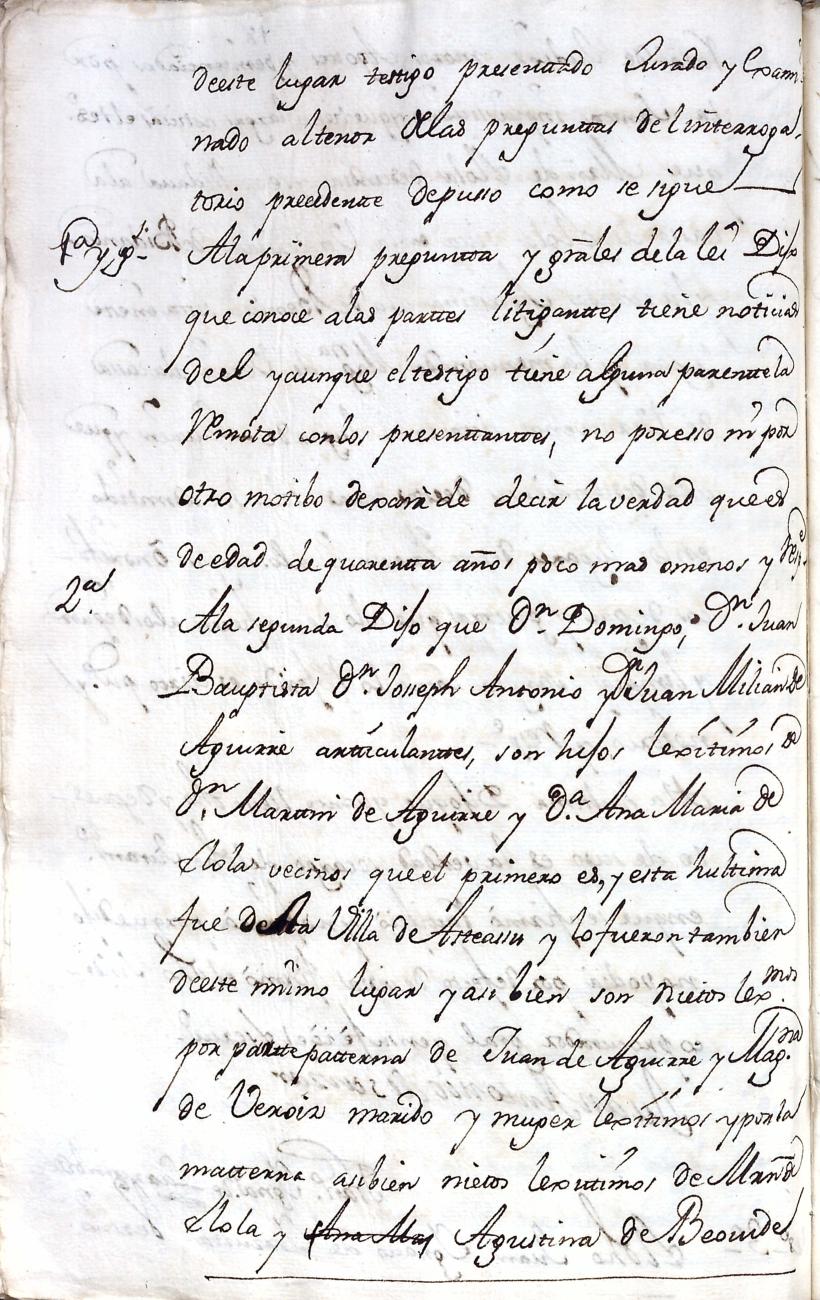 deeste lugar testigo presenttado Jurado y Exami
nado altenor delas preguntas del interroga
torio precedentte depusso como se sigue
1ª y g.s Ala primera pregunta y gräles dela lei Dijo
que conoce alas parttes litiganttes tiene noticias
de el yaunque eltestigo tiene alguna parenttela
Remota conlos presenttanttes, no poresso ni por
otro motibo dexará de decir la verdad que es
de edad de quarentta años poco mas omenos y
2.ª Ala segunda Dijo que D.n Domingo, D.n Juan
Bauptista D.n Joseph Antonio y D.n Juan Milian de
Aguirre articulanttes, son hijos lexitimos de
D.n Marttin de Aguirre y D.ª Ana Maria de
Elola vecinos que el primero es, y esta hultima
fué de la Villa de Asteassu y lo fueron tambien
deeste mimo lugar y asi bien son Nietos lex.mos
por partte patterna de Juan de Aguirre y Mag.na
de Veroiz marido y muger lexítimos y por la
matterna asi bien nietos lexittimos de Mrñ de
Elola y Ana Mar Agustina de Beovide